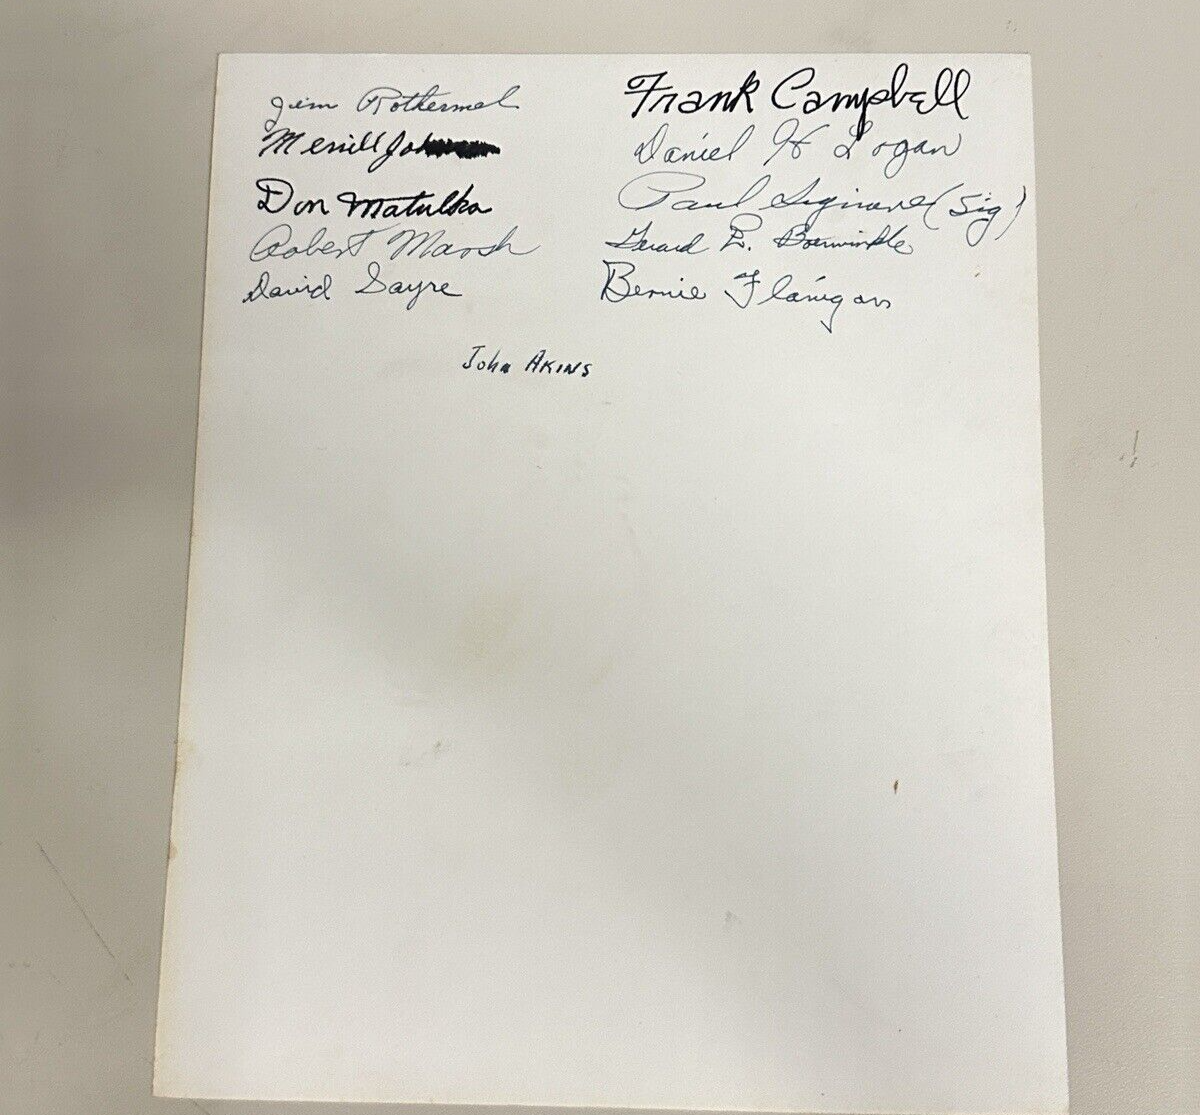 Jim Rothermel
Merrill
Don Matulka
Robert Marsh
David Sayre
Frank Campbell
Daniel H Logan
Paul (Sig)
Gerard E.
Bernie Flanigan
John AKINS